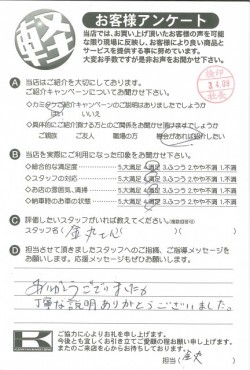 軽
お客様アンケート
当店では、お買い上げ頂いたお客様の声を可能な限り現場に反映し、お客様により良い商品とサービスを提供する事に努めています。
大変お手数ですが是非お声をお聞かせ下さい。
A 当店はご紹介を大切にしております。
ご紹介キャンペーンについてお聞かせ下さい。
ご紹介キャンペーンのご説明はありましたでしょうか
はい いいえ
具体的にご紹介頂ける方とのご関係をお聞かせ頂けますでしょうか
ご親族 ご友人 職場の方 機会があれば紹介したい
B 当店を実際にご利用になった印象をお聞かせ下さい。
◇総合的な満足度 5.大満足 4.満足 3.ふつう 2.やや不満 1.不満
◇スタッフの対応 5.大満足 4.満足 3.ふつう 2.やや不満 1.不満
◇お店の雰囲気、清掃 5.大満足 4.満足 3.ふつう 2.やや不満 1.不満
◇納車時のお車の状態 5.大満足 4.満足 3.ふつう 2.やや不満 1.不満
C 評価したいスタッフがいれば教えてください。
スタッフ名( 金丸さん )( )
D 担当させて頂きましたスタッフへのご指摘、ご指導メッセージをお願いします。応援メッセージもぜひお願いします。
ありがとうございました
丁寧な説明ありがとうございました。
K
ご協力に心よりお礼を申し上げます。
今後とも宜しくお引き立てご愛顧の程お願い申し上げます。
またのご来店を心からお待ちしております。
担当( 金丸 )